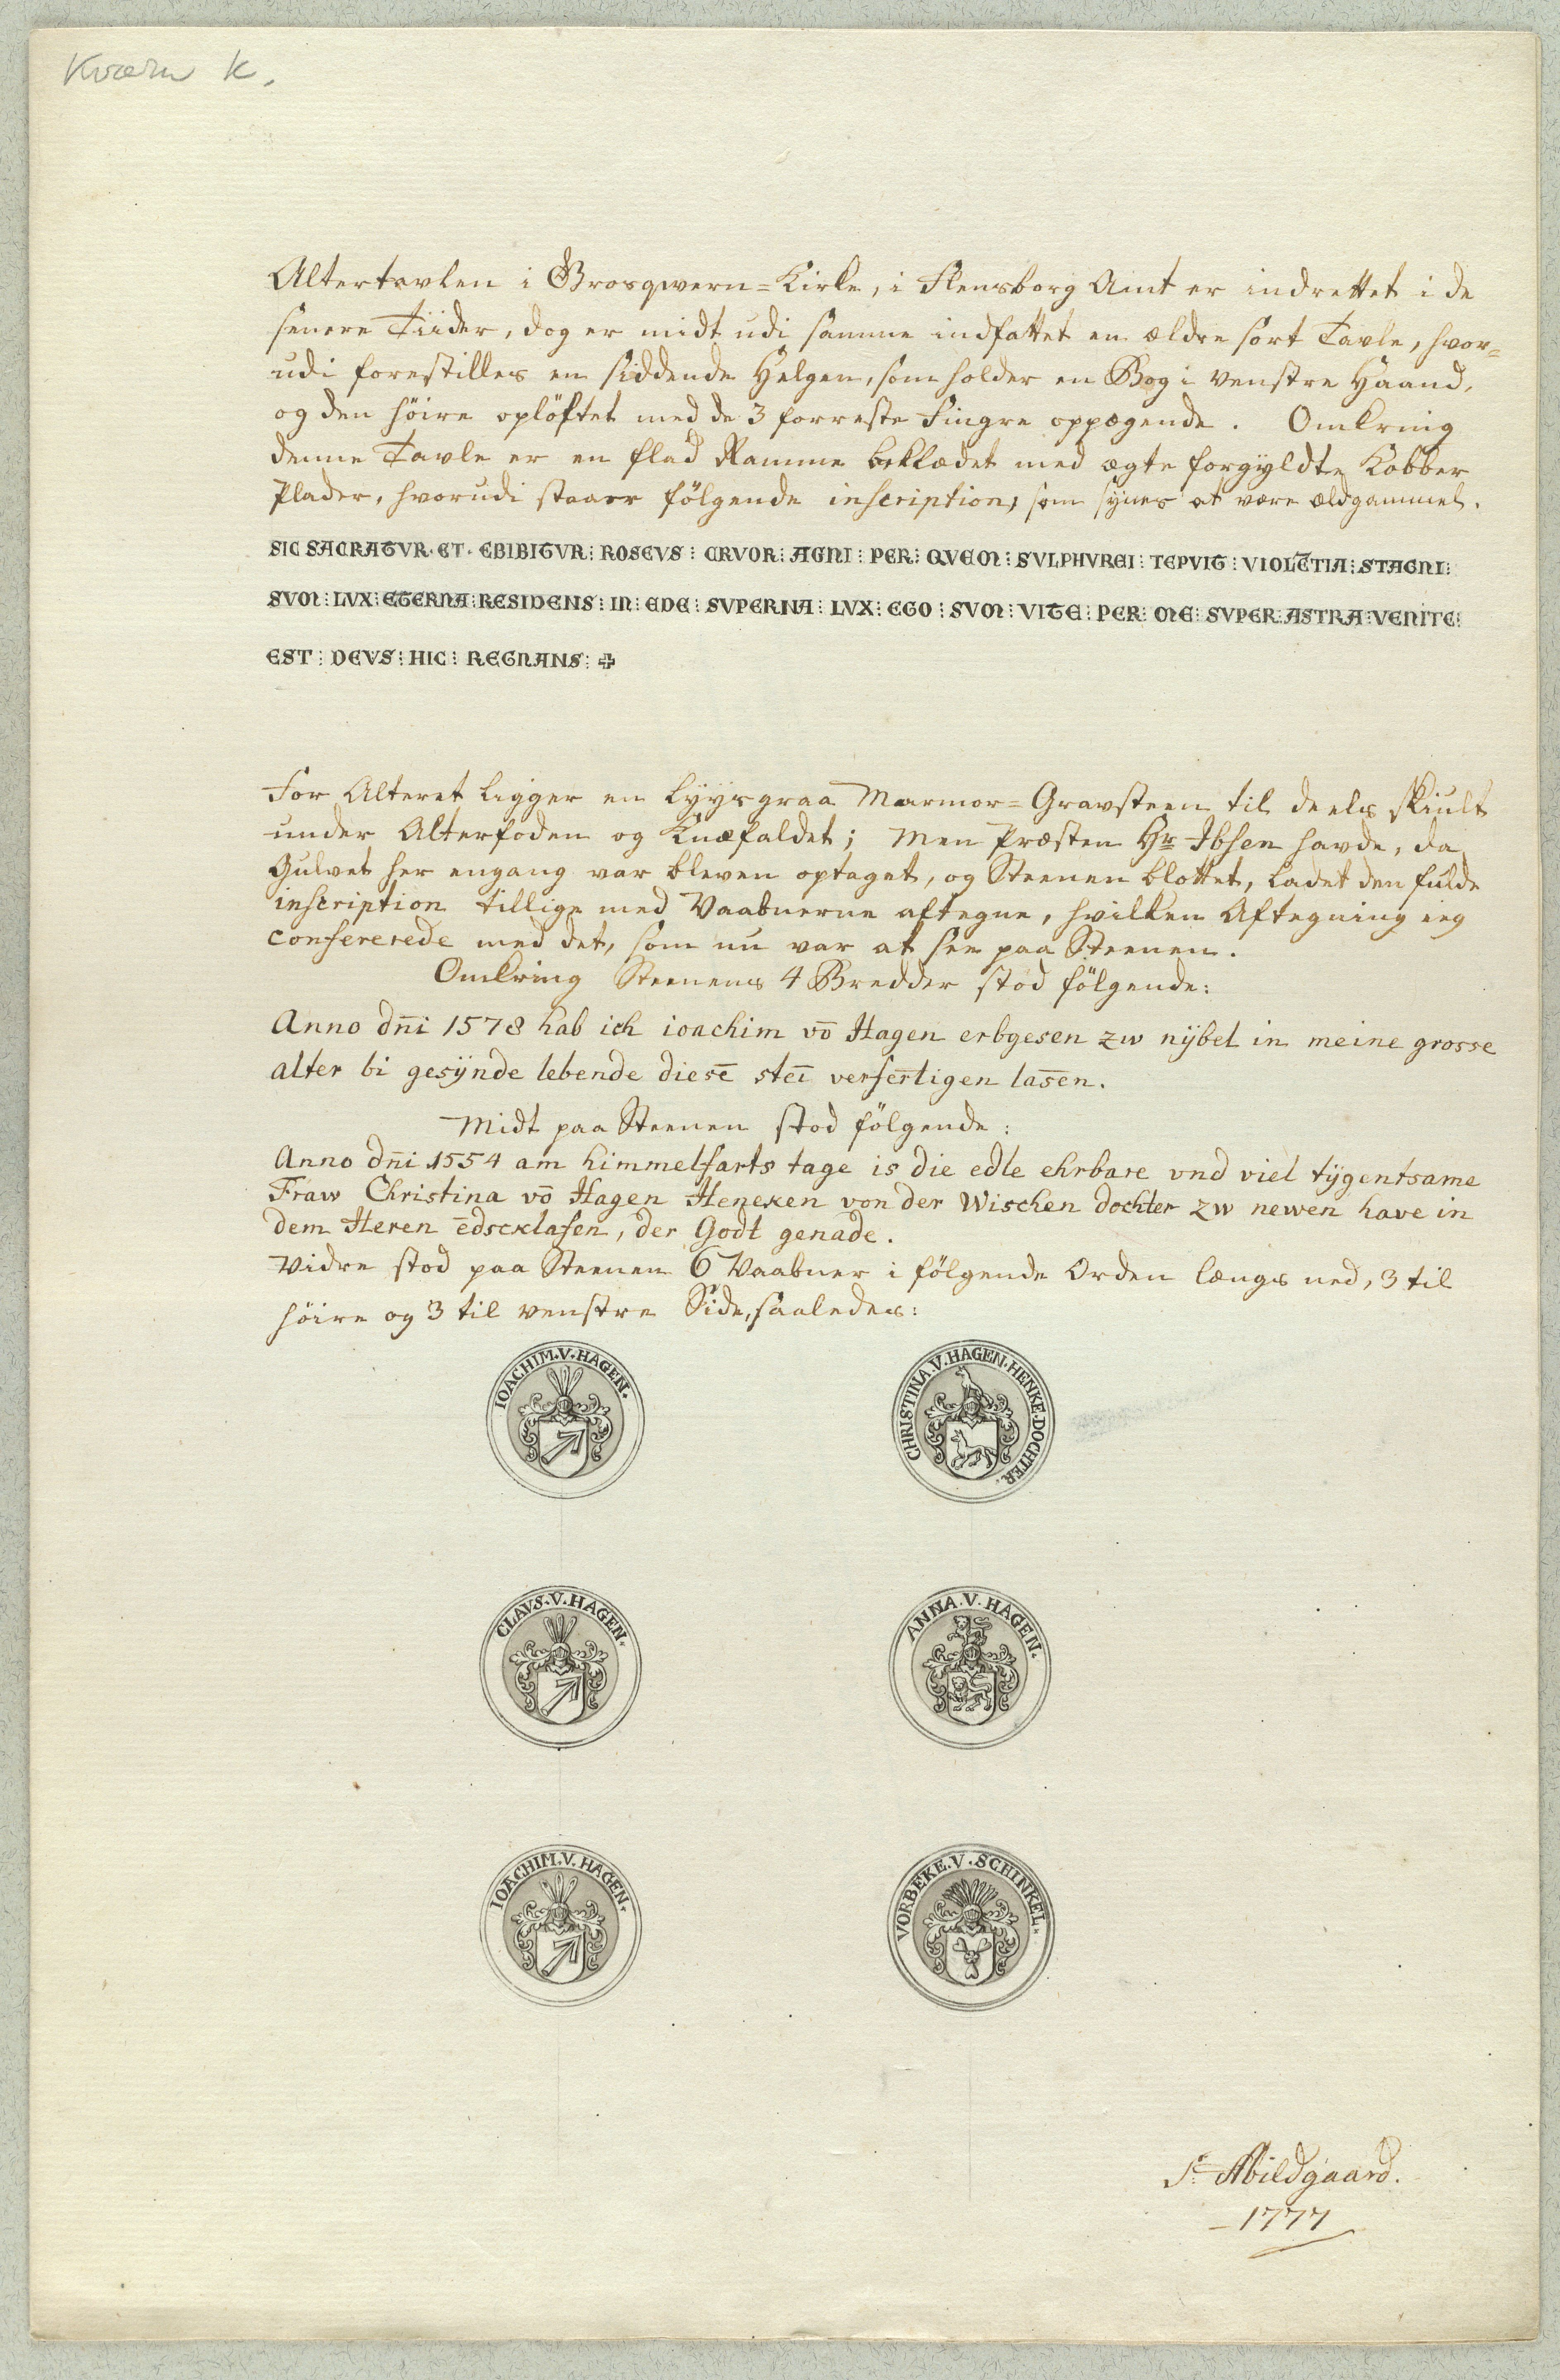 Kværn K.
Altertavlen i Grosqwern=Kirke, i Flensborg Amt er indrettet i de
senere Tiider, dog er midt udi samme indfattet en ældre sort Tavle, hvor=
udi forestilles en siddende Helgen, som holder en Bog i venstre Haand,
og den höire oplöftet med de 3 forreste Fingre oppegende. Omkring
denne Tavle er en flad Ramme beklædet med ægte forgyldte Kobber
Plader, hvorudi staaer fölgende inscription, som synes at være ældgammel.
SIC SACRATVR · ET · EBIBITVR : ROSEVS : CRVOR : AGNI : PER : QVEM : SVLPHVREI : TEPVIT : VIOLE̅TIA : STAGNI :
SVM : LVX : ETERNA : RESIDENS : IN : EDE : SVPERNA : LVX : EGO : SVM : VITE : PER : ME : SVPER : ASTRA : VENITE :
EST : DEVS : HIC : REGNANS : ✠
For Alteret ligger en lyysgraa Marmor=Gravsteen til deels skiult
under Alterfoden og Knæfaldet; Men Præsten Hr Ibsen havde, da
Gulvet her engang var bleven optaget, og Steenen blottet, ladet den fulde
inscription tillige med Vaabnerne aftegne, hvilken Aftegning ieg
confererede med det, som nu var at see paa Steenen.
Omkring Steenens 4 Bredder stod fölgende:
Anno dn̄i 1578 hab ich ioachim vō Hagen erbgesen zw nÿbel in meine grosse
alter bi gesÿnde lebende diesē steī verfertigen lasen.
Midt paa Steenen stod fölgende:
Anno dn̄i 1554 am himmelfarts tage is die edle ehrbare vnd viel tÿgentsame
Fraw Christina vō Hagen Heneken von der Wischen dochter zw newen have in
dem Heren ēdscklafen, der Godt genade.
Vidre stod paa Steenen 6 Vaabner i fölgende Orden længs ned, 3 til
höire og 3 til venstre Side, saaledes:
IOACHIM. V. HAGEN.
CHRISTINA. V. HAGEN. HENKE. DOCHTER.
CLAVS. V. HAGEN.
ANNA. V. HAGEN.
IOACHIM. V. HAGEN.
VORBEKE. V. SCHINKEL.
S: Abildgaard.
1777